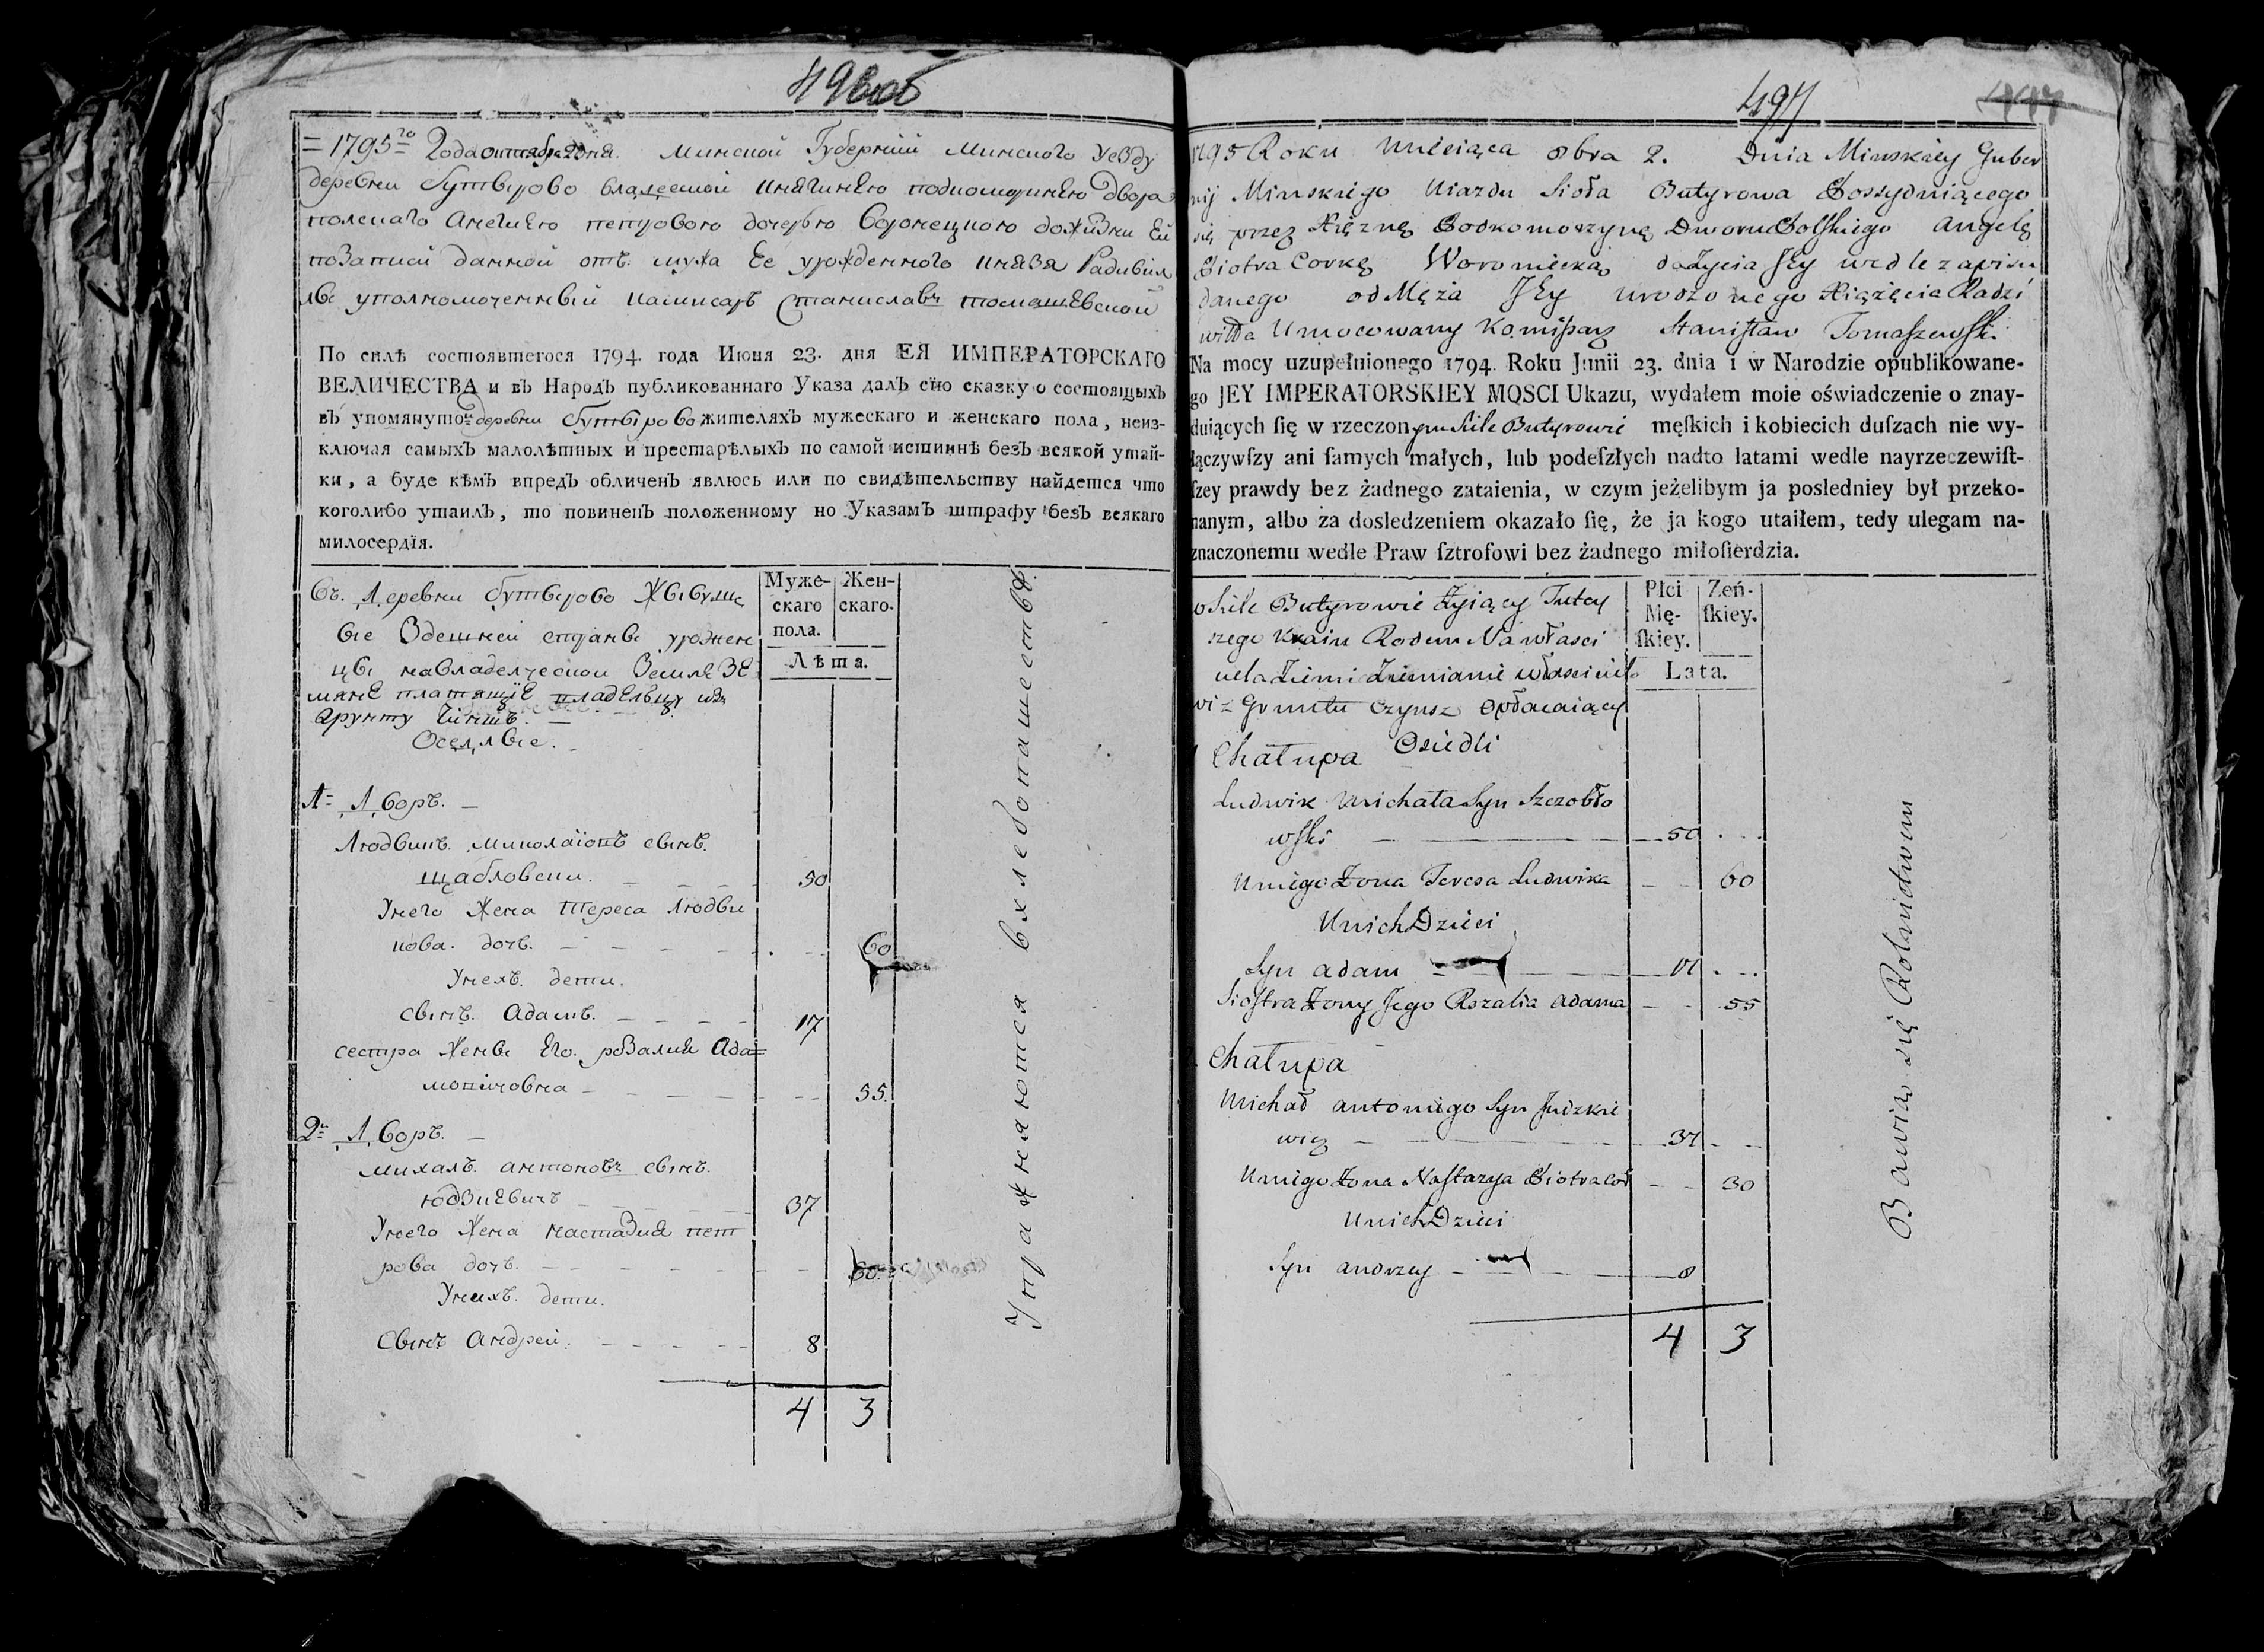 49 воб
= 1795го Года октября 2 дня. минской Губернии минского уезду
деревни бутырово владеемой княгинею подкоморинею двора
полскаго Анелиею петровою дочерью Воронецкою дожизни Ей
по Записи данной отъ мужа Ее урожденного князя Радивил
лы уполномоченный комисаръ Станиславъ томашевской
По силѣ состоявшегося 1794 года Июня 23. дня ЕЯ ИМПЕРАТОРСКАГО
ВЕЛИЧЕСТВА и въ Народъ публикованнаго Указа далъ сію сказку о состоящыхъ
въ упомянутой деревни бутырово жителяхъ мужескаго и женскаго пола, неиз-
ключая самыхъ малолѣтныхъ и престарѣлыхъ по самой истиннѣ безъ всякой утай-
ки, а буде кѣмъ впредъ обличенъ явлюсь или по свидѣтельству найдется что
коголибо утаилъ, то повиненъ положенному по Указамъ штрафу безъ всякаго
милосердія.
Въ деревни бутырово Живущи
ые Здешней страны урожен
цы на владелческой Земле ЗЕ
мяне платящіе владельцу изъ
Грунту Чиншъ. —
Оседлые.
Муже-
скаго
пола.
Жен-
скаго.
Лѣта.
1= Дворъ. —
Людвикъ миколаіовъ сынъ
щабловски. 50
Унего Жена Тереса Людви
кова дочь. 60
Унихъ дети.
сынъ Адамъ. 17
сестра Жены Его розалия Ада=
мовичовна 55.
2= Дворъ. —
михалъ антоновъ сынъ
юдзкевичъ 37
Унего Жена настазия пет
рова дочь. 30
Унихъ дети.
Сынъ Андрей. 8
4 3
Упражняются вхлебопашестве
497
447
1795 Roku Miesiąca 8bra 2. Dnia Minskiey Guber
nij Minskiego Uiazdu Sioła Butyrowa Possydującego
się przez Xiężnę Podkomorzynę Dworu Polskiego Angelę
Piotra Corkę Woroniecką do Życia Jey wedle zapisu
danego od Męża Jey urodzonego Xiążęcia Radzi
wiłła Umocowany Komissarz Stanisław Tomaszewski.
Na mocy uzupełnionego 1794. Roku Junii 23. dnia i w Narodzie opublikowane-
go JEY IMPERATORSKIEY MOSCI Ukazu, wydałem moie oświadczenie o znay-
duiących ſię w rzeczonym Siele Butyrowie męſkich i kobiecich duſzach nie wy-
łączywſzy ani ſamych małych, lub podeſzłych nadto latami wedle nayrzeczewiſt-
ſzey prawdy bez żadnego zataienia, w czym jeżelibym ja posledniey był przeko-
nanym, albo za dosledzeniem okazało ſię, że ja kogo utaiłem, tedy ulegam na-
znaczonemu wedle Praw ſztrofowi bez żadnego miłoſierdzia.
w Siele Butyrowie Żyiący Tutey
szego Kraiu Rodem Na własci
ciela Ziemi Ziemianie właścicielo
wi z Gruntu Czynsz Opłacaiący
Osiedli
Płci
Mę-
ſkiey.
Żeń-
ſkiey.
Lata.
1 Chałupa
Ludwik Michała Syn Szczobło
wski 50
U niego Żona Teresa Ludwika 60
U nich Dzieci
Syn Adam 17
Siostra Żony Jego Rozalia Adama 55
Chałupa
Michał Antoniego Syn Judzkie
wicz 37
U niego Żona Nastazya Piotra Cor 30
U nich Dzieci
Syn Andrzey 8
4 3
Bawią się Rolnictwem